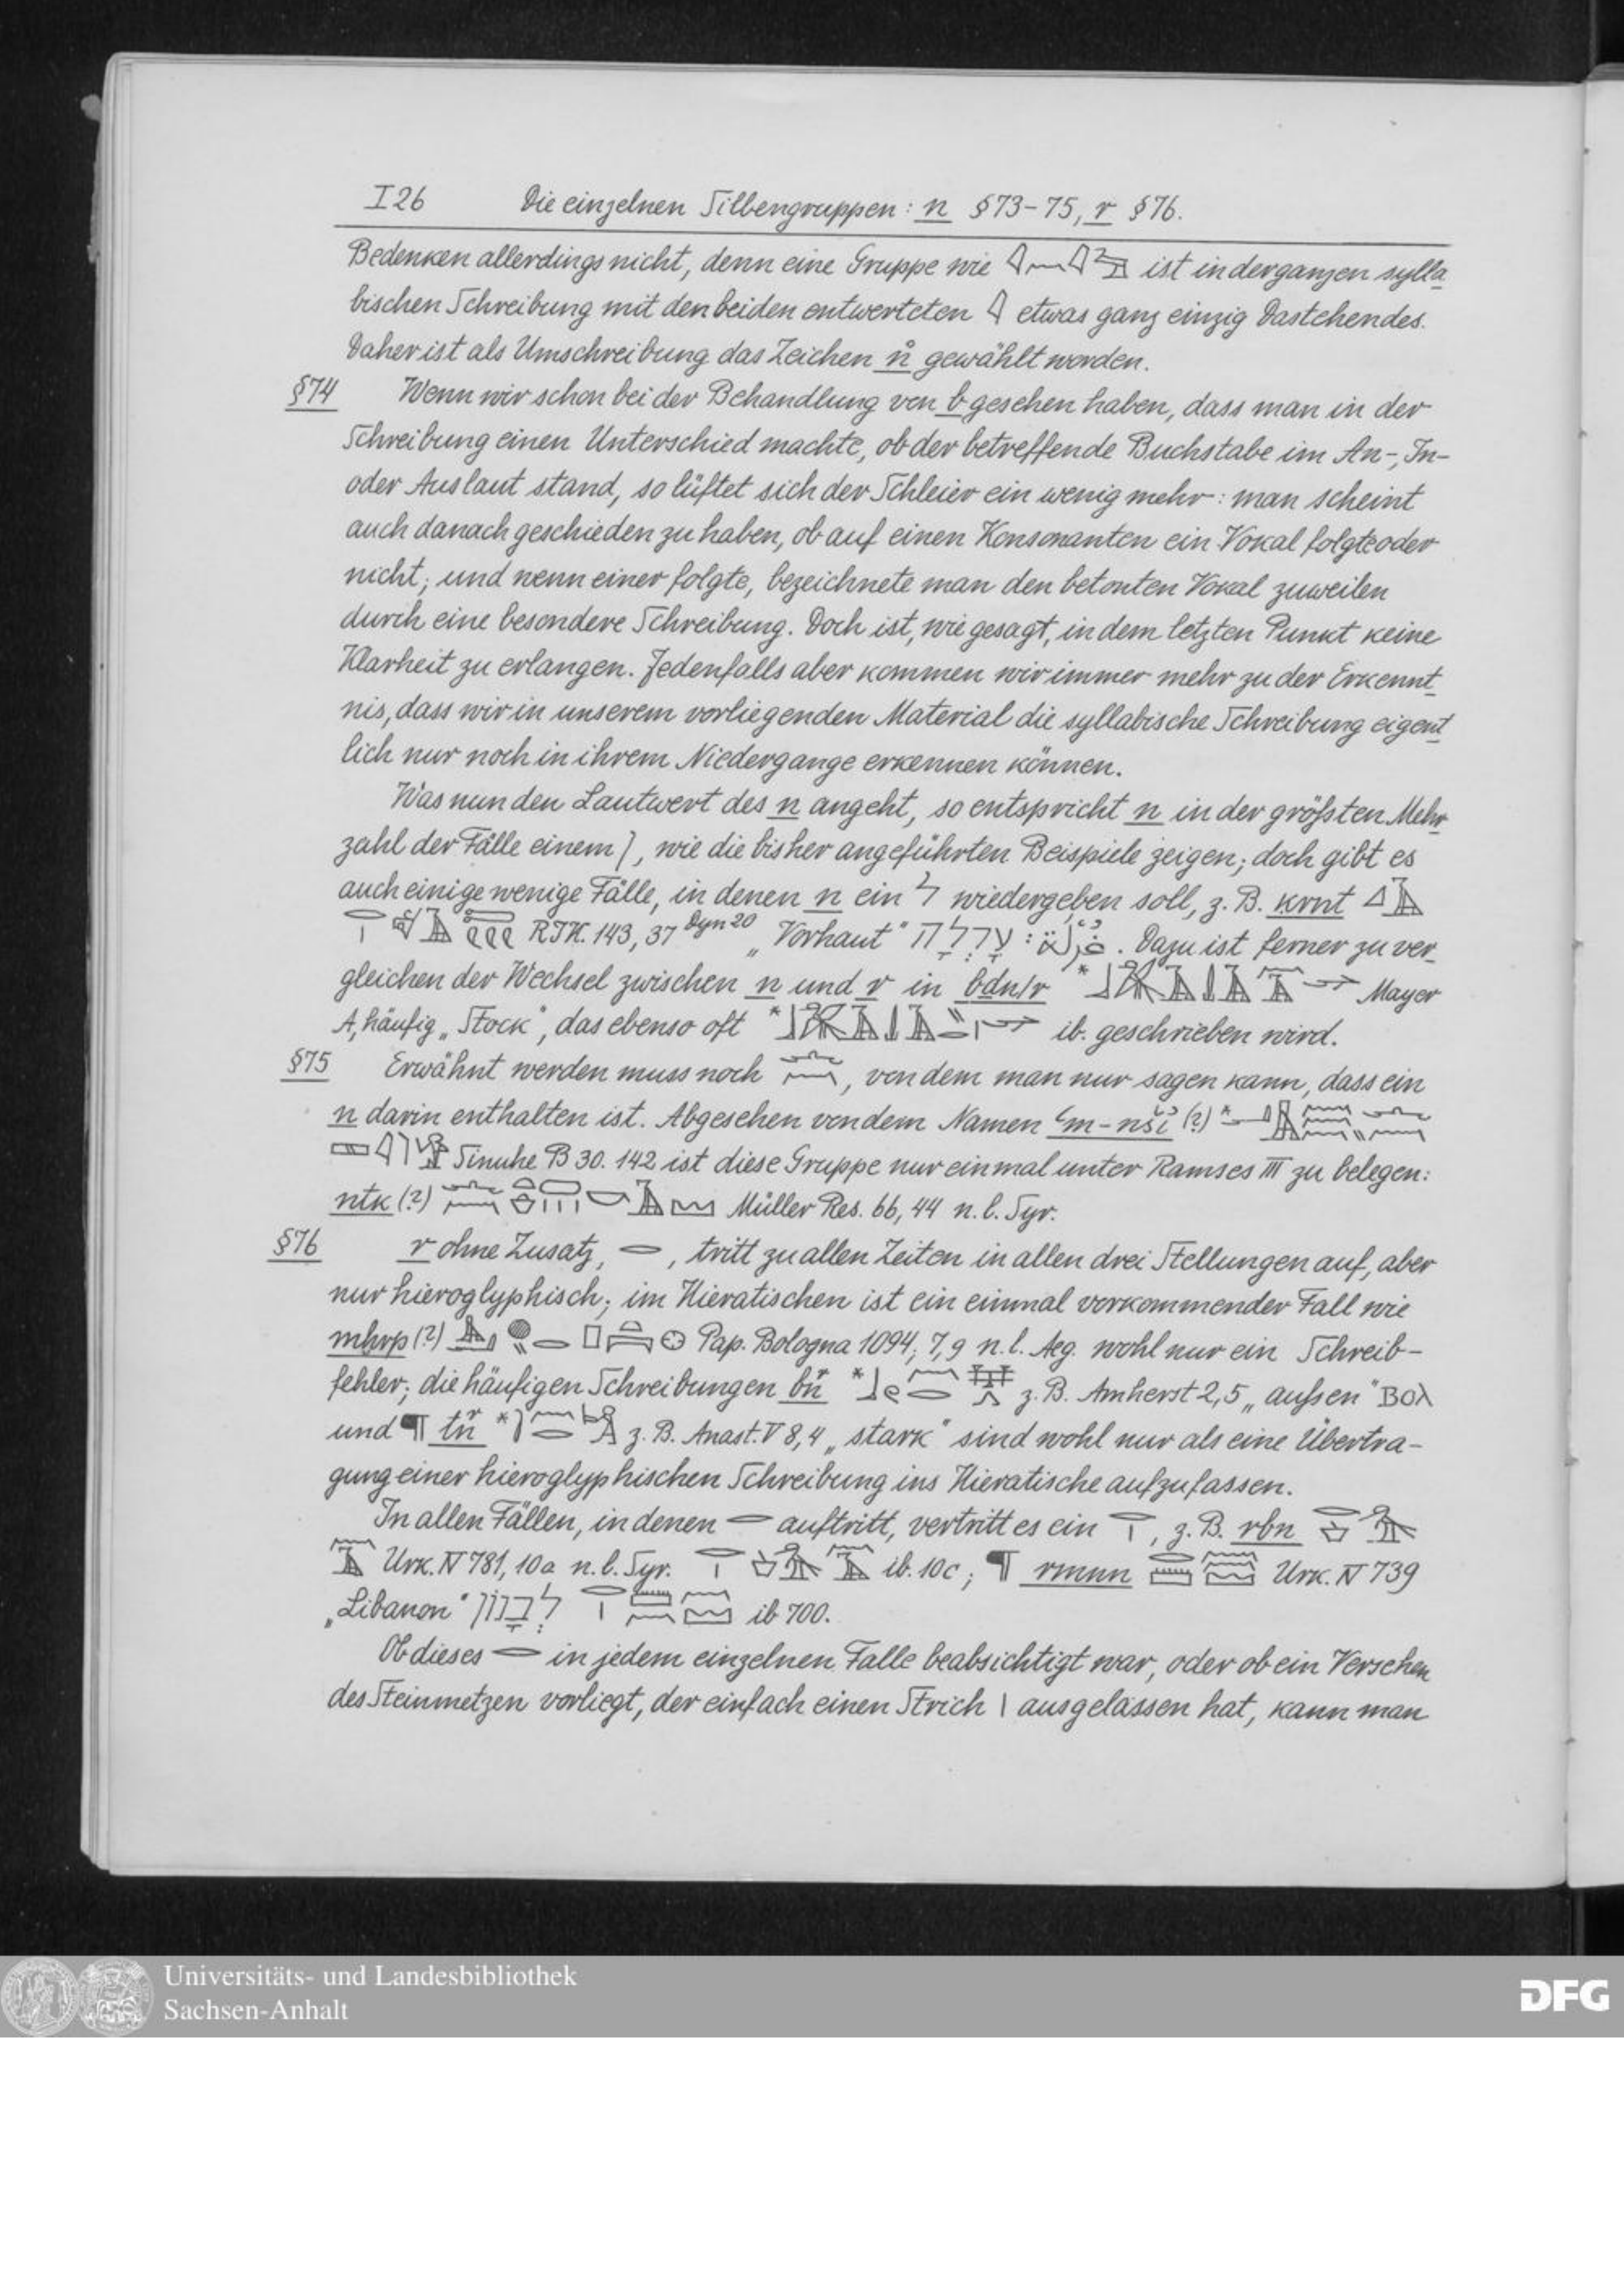 I 26 Die einzelnen Silbengruppen: n §73-75, r §76.
Bedenken allerdings nicht, denn eine Gruppe wie ist in der ganzen sylla
bischen Schreibung mit den beiden entwerteten 𓇋 etwas ganz einzig Dastehendes.
Daher ist als Umschreibung das Zeichen n̊ gewählt worden.
§74 Wenn wir schon bei der Behandlung von b gesehen haben, dass man in der
Schreibung einen Unterschied machte, ob der betreffende Buchstabe im An-, In-
oder Auslaut stand, so lüftet sich der Schleier ein wenig mehr: man scheint
auch danach geschieden zu haben, ob auf einen Konsonanten ein Vokal folgte oder
nicht; und wenn einer folgte, bezeichnete man den betonten Vokal zuweilen
durch eine besondere Schreibung. Doch ist, wie gesagt, in dem letzten Punkt keine
Klarheit zu erlangen. Jedenfalls aber kommen wir immer mehr zu der Erkennt
nis, dass wir in unserem vorliegenden Material die syllabische Schreibung eigent
lich nur noch in ihrem Niedergange erkennen können.
Was nun den Lautwert des n angeht, so entspricht n in der größten Mehr
zahl der Fälle einem נ, wie die bisher angeführten Beispiele zeigen; doch gibt es
auch einige wenige Fälle, in denen n ein ל wiedergeben soll, z. B. krnt
RIK. 143, 37 Dyn 20 „Vorhaut" עָרְלָה : غُرْلَة. Dazu ist ferner zu ver
gleichen der Wechsel zwischen n und r in bdn/r * Mayer
A, häufig „Stock", das ebenso oft * ib. geschrieben wird.
§75 Erwähnt werden muss noch , von dem man nur sagen kann, dass ein
n darin enthalten ist. Abgesehen von dem Namen (?) *
Sinuhe B 30. 142 ist diese Gruppe nur einmal unter Ramses III zu belegen:
ntk (?) Müller Res. 66, 44 n. l. Syr.
§76 r ohne Zusatz, 𓂋, tritt zu allen Zeiten in allen drei Stellungen auf, aber
nur hieroglyphisch; im Hieratischen ist ein einmal vorkommender Fall wie
mhrp (?) Pap. Bologna 1094; 7,9 n. l. Aeg. wohl nur ein Schreib-
fehler; die häufigen Schreibungen * z. B. Amherst 2,5 „außen" ⲃⲟⲗ
und ¶ * z. B. Anast. V 8,4 „stark" sind wohl nur als eine Übertra-
gung einer hieroglyphischen Schreibung ins Hieratische aufzufassen.
In allen Fällen, in denen 𓂋 auftritt, vertritt es ein 𓂋𓏤, z. B. rbn
Urk. IV 781, 10a n. l. Syr. ib. 10c; ¶ rmnn Urk. IV 739
„Libanon" לְבָנוֹן ib 700.
Ob dieses 𓂋 in jedem einzelnen Falle beabsichtigt war, oder ob ein Versehen
des Steinmetzen vorliegt, der einfach einen Strich 𓏤 ausgelassen hat, kann man
Universitäts- und Landesbibliothek
Sachsen-Anhalt
DFG